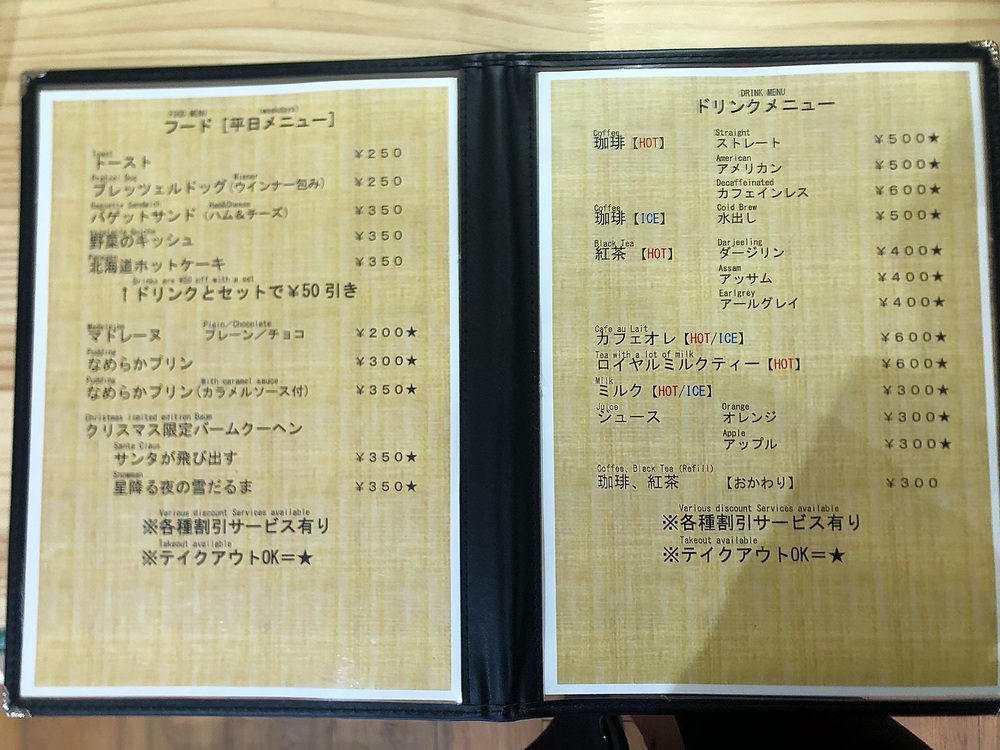 FOOD MENU (weekdays)
フード [平日メニュー]
Toast
トースト ￥250
Pretzel Dog Wiener
プレッツェルドッグ(ウインナー包み) ￥250
Baguette Sandwich Ham&Cheese
バゲットサンド (ハム&チーズ) ￥350
野菜のキッシュ ￥350
北海道ホットケーキ ￥350
Drinks are ¥50 off with a set
↑ドリンクとセットで￥50引き
Madeleine Plain/Chocolate
マドレーヌ プレーン/チョコ ￥200★
Pudding
なめらかプリン ￥300★
Pudding With caramel sauce
なめらかプリン(カラメルソース付) ￥350★
Christmas limited edition Baum
クリスマス限定バームクーヘン
Santa Claus
サンタが飛び出す ￥350★
Snowman
星降る夜の雪だるま ￥350★
Various discount Services available
※各種割引サービス有り
Takeout available
※テイクアウトOK＝★
DRINK MENU
ドリンクメニュー
Coffee Straight
珈琲【HOT】 ストレート ￥500★
American
アメリカン ￥500★
Decaffeinated
カフェインレス ￥600★
Coffee Cold Brew
珈琲【ICE】 水出し ￥500★
Black Tea Darjeeling
紅茶 【HOT】 ダージリン ￥400★
Assam
アッサム ￥400★
Earlgrey
アールグレイ ￥400★
Cafe au Lait
カフェオレ【HOT/ICE】 ￥600★
Tea with a lot of milk
ロイヤルミルクティー【HOT】 ￥600★
Milk
ミルク【HOT/ICE】 ￥300★
Juice Orange
ジュース オレンジ ￥300★
Apple
アップル ￥300★
Coffee, Black Tea (Refill)
珈琲、紅茶 【おかわり】 ￥300
Various discount Services available
※各種割引サービス有り
Takeout available
※テイクアウトOK＝★